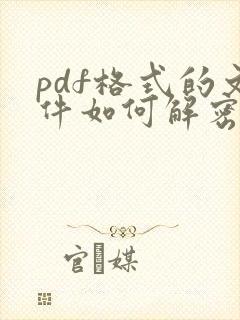 pdf格式的文
件如何解密
官媒